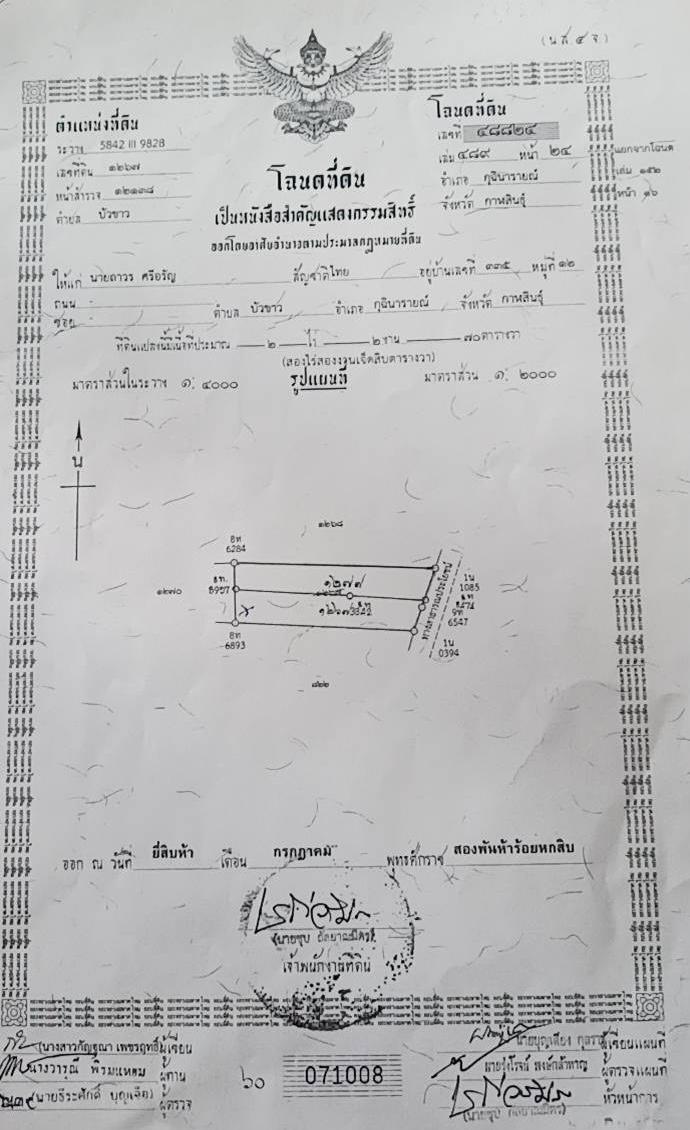 (น.ส.๔ จ.)
ตำแหน่งที่ดิน
ระวาง 5842 III 9828
เลขที่ดิน ๑๒๖๗
หน้าสำรวจ ๑๒๑๓๘
ตำบล บัวขาว
โฉนดที่ดิน
เลขที่ ๔๘๘๒๔
เล่ม ๔๘๙ หน้า ๒๔
อำเภอ กุฉินารายณ์
จังหวัด กาฬสินธุ์
แยกจากโฉนด
เล่ม ๑๕๒
หน้า ๑๖
โฉนดที่ดิน
เป็นหนังสือสำคัญแสดงกรรมสิทธิ์
ออกโดยอาศัยอำนาจตามประมวลกฎหมายที่ดิน
ให้แก่ นายถาวร ศรีอรัญ สัญชาติไทย อยู่บ้านเลขที่ ๓๓๕ หมู่ที่ ๑๒
ถนน -
ซอย - ตำบล บัวขาว อำเภอ กุฉินารายณ์ จังหวัด กาฬสินธุ์
ที่ดินแปลงนี้มีเนื้อที่ประมาณ ๒ ไร่ ๒ งาน ๗๐ ตารางวา
(สองไร่สองงานเจ็ดสิบตารางวา)
มาตราส่วนในระวาง ๑: ๔๐๐๐ รูปแผนที่ มาตราส่วน ๑: ๒๐๐๐
น
๑๒๖๘
ฮท
6284
๑๒๗๐
ฮท.
๑๒๗๗
1น
1085
9ท
6547
ทางสาธารณประโยชน์
ฮท
6893
1น
0394
๘๒๒
ออก ณ วันที่ ยี่สิบห้า เดือน กรกฎาคม พุทธศักราช สองพันห้าร้อยหกสิบ
เจ้าพนักงานที่ดิน
(นางสาวกัญฐณา เพชรฤทธิ์) ผู้เขียน
นางวารุณี พิรมแหลม ผู้ทาน
(นายธีระศักดิ์ บุญเจือ) ผู้ตรวจ
๖๐
071008
ผู้เขียนแผนที่
นายรุ่งโรจน์ ผู้ตรวจแผนที่
หัวหน้าการ